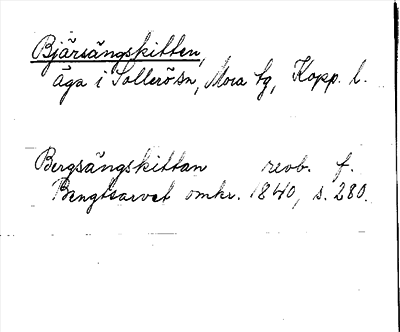 Bjärsängskitten,
äga i Sollerösn, Mora tg, Kopp. l.
Bergsängskittan revb. f.
Bengtsarvet omkr. 1840, s. 280.